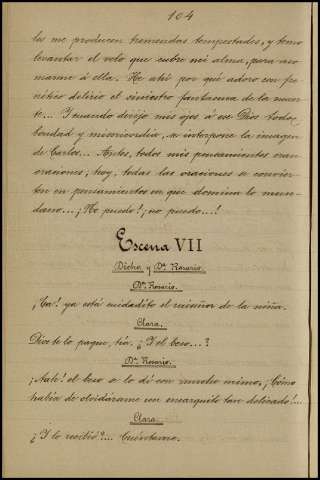 104
les me producen tremendas tempestades, y temo
levantar el velo que cubre mi alma, para aso
marme á ella. He ahí por qué adoro con fre
nético delirio el siniestro fantasma de la muer
te... Y cuando dirijo mis ojos á ese Dios todo
bondad y misericordia, se interpone la imagen
de Carlos... Antes, todos mis pensamientos eran
oraciones; hoy, todas las oraciones se convier
ten en pensamientos en que domina lo mun
dano... ¡No puedo! ¡no puedo...!
Escena VII
Dicha y Dª Rosario.
Dª Rosario.
¡Ea! ya está cuidadito el ruiseñor de la niña.
Clara.
Dios te lo pague, tía. ¿Y el beso...?
Dª Rosario.
¡Anle! el beso se lo dí con mucho mimo. ¡Cómo
había de olvidárame con encarguito tan delicado!...
Clara.
¿Y lo recibió?... Cuéntame.